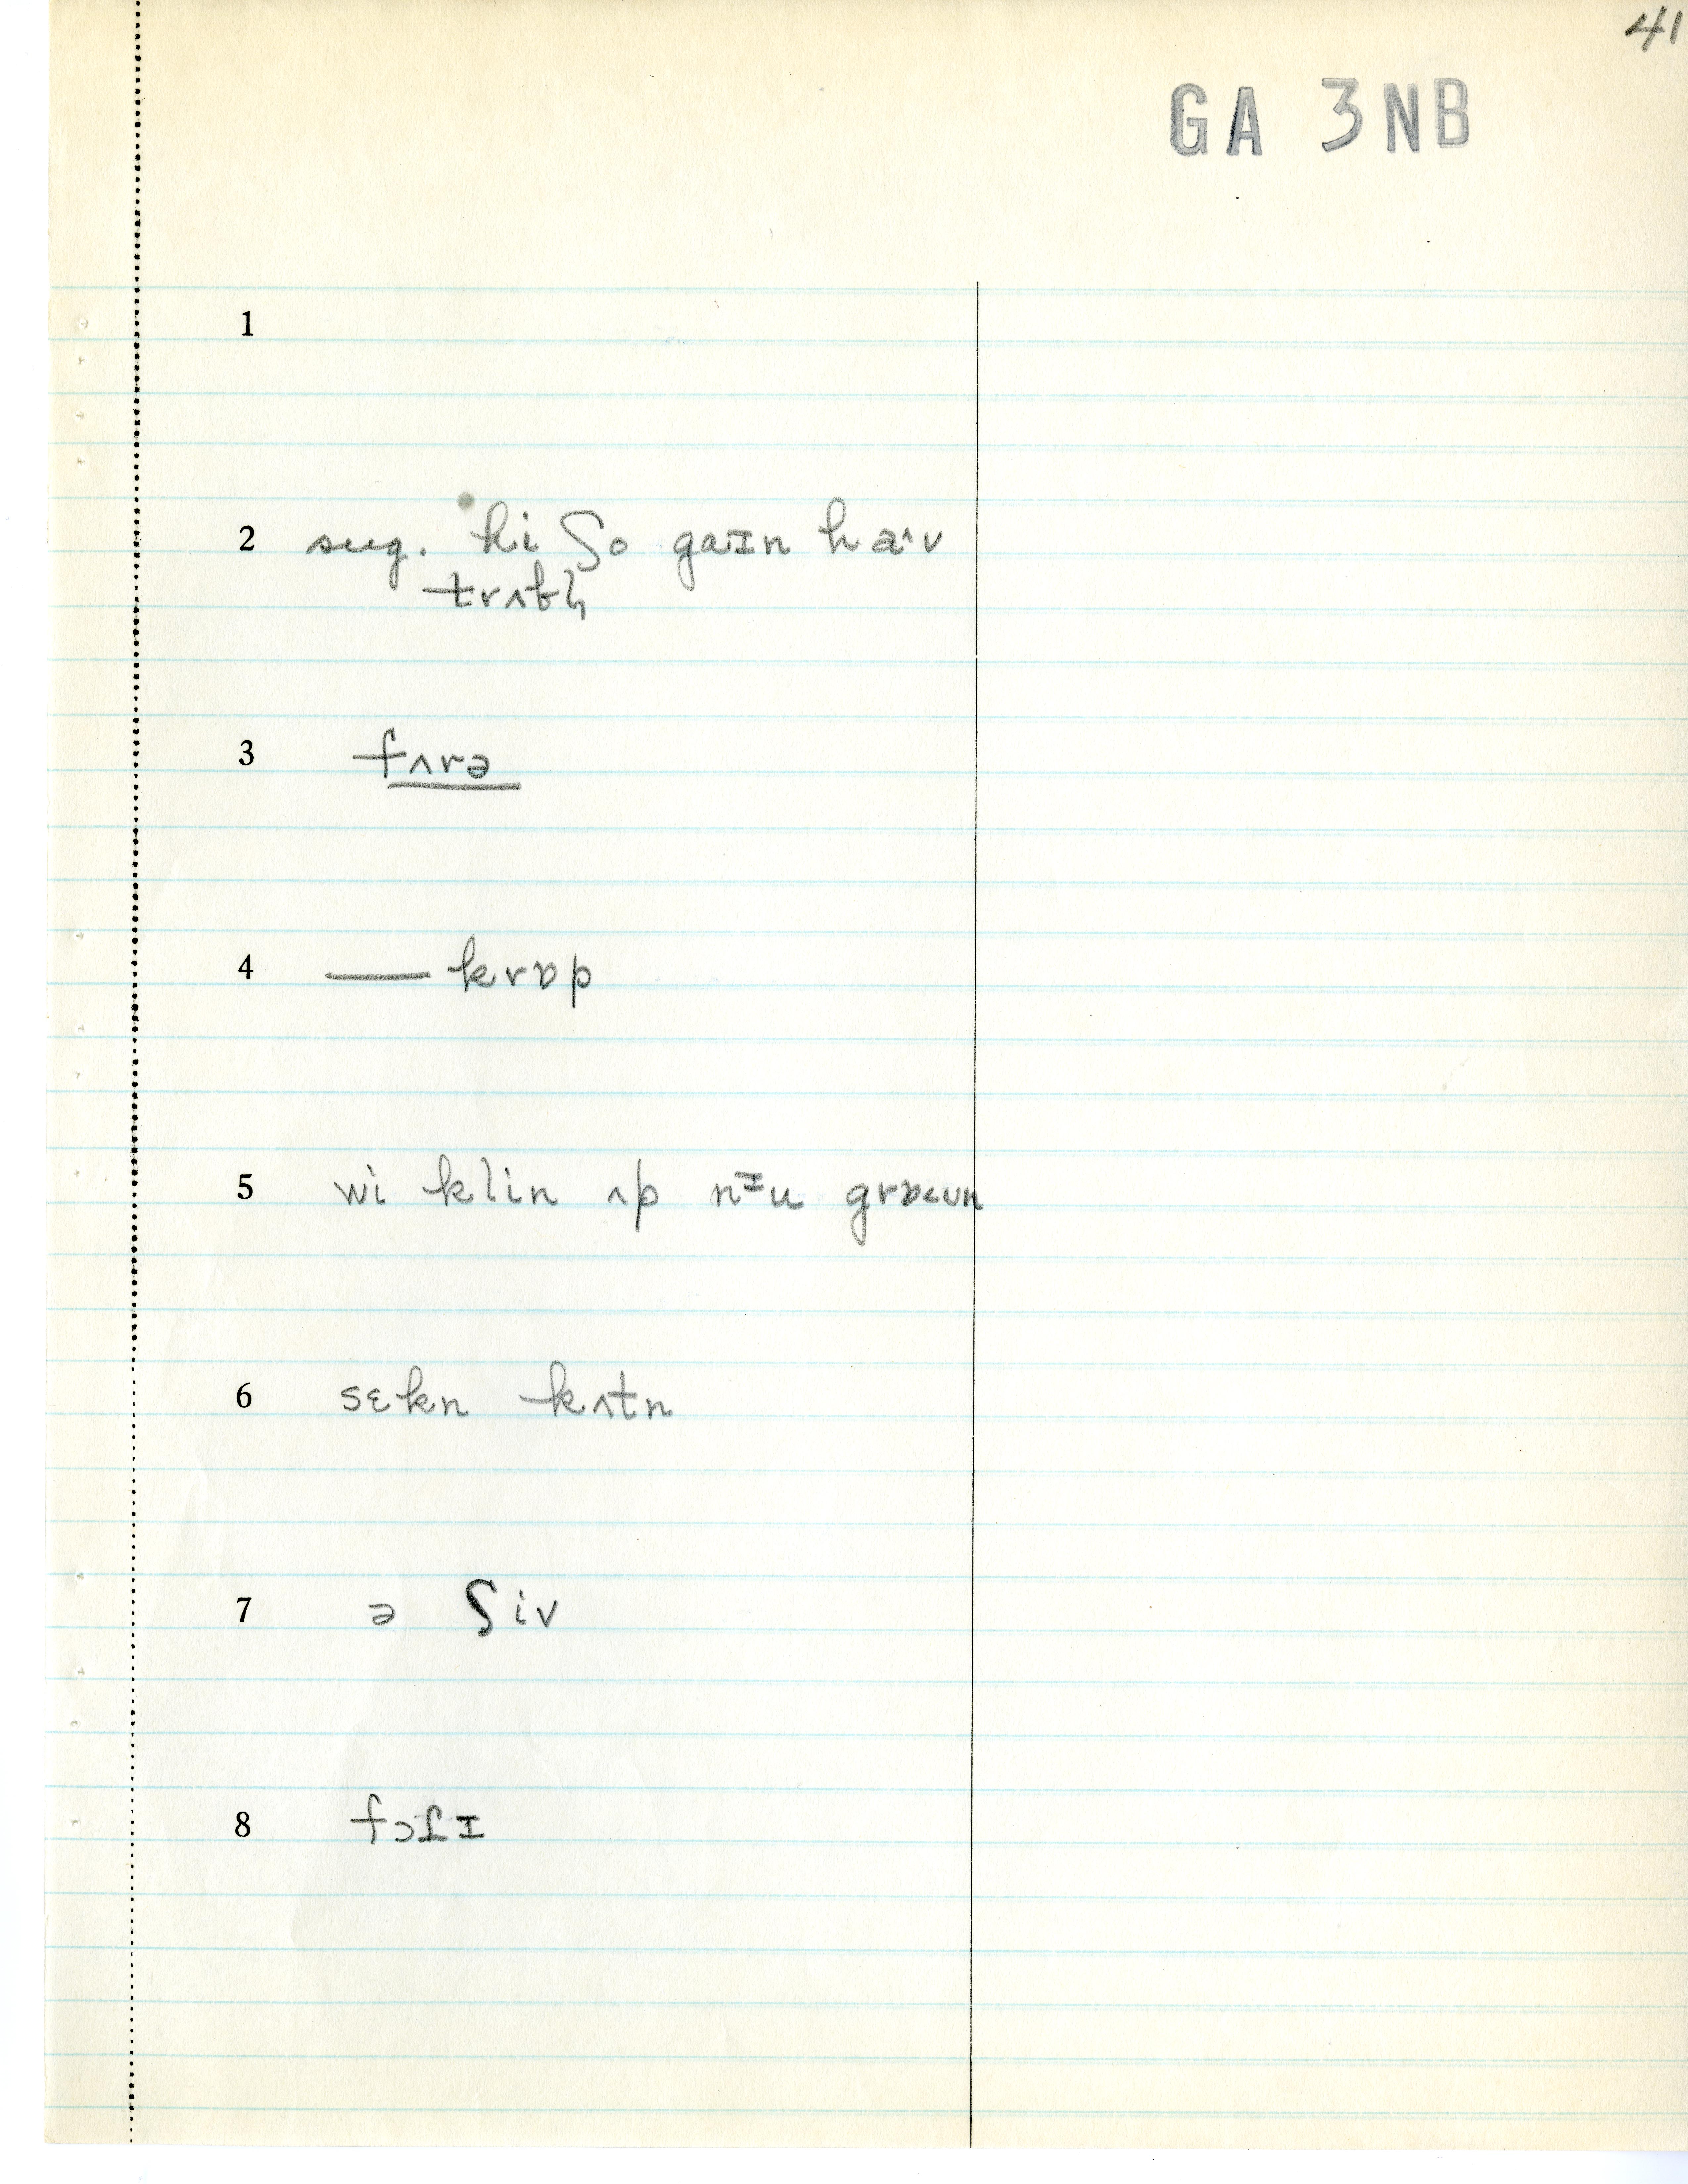 41
GA 3NB
1
2 sug. hi ʃo gaɪn haˑv
trʌbl̩
3 fʌrə
4 —— krɒp
5 wi klin ʌp nɪu grɒ<ʊn
6 sɛkn kʌtn
7 ə ʃiv
8 fɔɾɪ